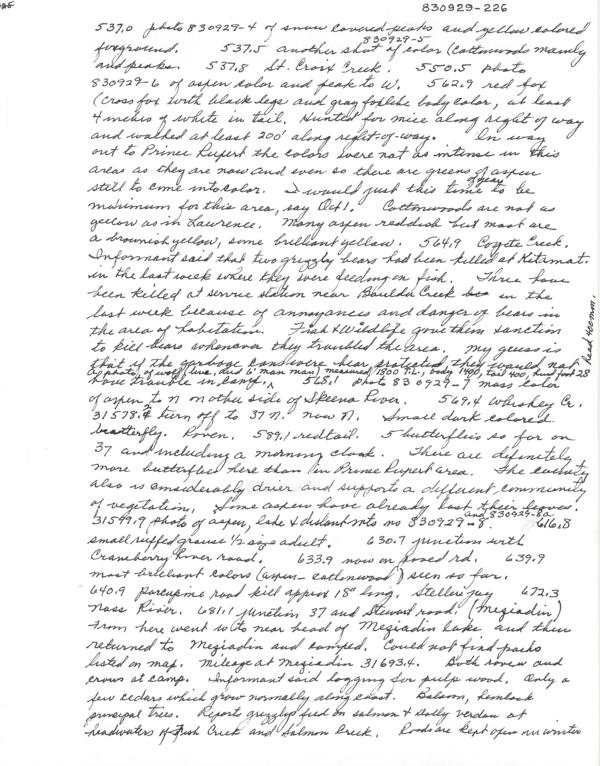 830929-226
537.0 photo 830929-4 of snow covered peaks and yellow colored
foreground. 537.5 another shot 830929-5 of color (Cottonwoods mainly
and peaks. 537.8 St. Croix Creek. 550.5 photo
830929-6 of aspen color and peak to W. 562.9 red fox
(cross fox with black legs and gray foxlike body color, at least
4 inches of white in tail. Hunted for mice along right of way
and walked at least 200' along right-of-way. On way
out to Prince Rupert the colors were not as intense in this
area as they are now and even so there are greens of aspen
still to come into color. I would just this time of year to be
maximum for this area, say Oct 1. Cottonwoods are not as
yellow as in Lawrence. Many aspen reddish but most are
a brownish yellow, some brilliant yellow. 564.9 Coyote Creek.
Informant said that two grizzly bears had been killed at Kitimat
in the last week where they were feeding on fish. Three have
been killed at service station near Boulder Creek in the
last week because of annoyances and danger of bears in
the area of habitation. Fish & Wildlife gave them sanction
to kill bears whenever they troubled the area. My guess is
that if the garbage cans were bear protected they would not
have trouble in camp. 568.1 photo 830929-7 mass color
of aspen to N on other side of Skeena River. 569.4 Whiskey Cr.
31578.2 turn off to 37 N. now N. Small dark colored
butterfly. Raven. 589.1 redtail. 5 butterflies so far on
37 and including a morning cloak. There are definitely
more butterflies here than in Prince Rupert area. The country
also is considerably drier and supports a different community
of vegetation. Some aspen have already lost their leaves.
31599.9 photo of aspen, lake & distant mts no 830929-8 and 830929-8a. 616.8
small ruffed grouse 1/2 size adult. 630.7 junction with
Craneberry River road. 633.9 now on paved rd. 639.9
most brilliant colors (aspen-cottonwood) seen so far.
640.9 porcupine road kill approx 18" long. Stellers jay 672.3
Nass River. 681.1 junction 37 and Stewart road (Meziadin)
From here went W to near head of Meziadin Lake and then
returned to Meziadin and camped. Could not find parks
listed on map. Mileage at Meziadin 31693.4. Both raven and
crows at camp. Informant said logging for pulp wood. Only a
few cedars which grow normally along coast. Balsam, hemlock
principal trees. Reports grizzlys feed on salmon & dolly verdan at
headwaters of Fish Creek and Salmon Creek. Roads are kept open in winter